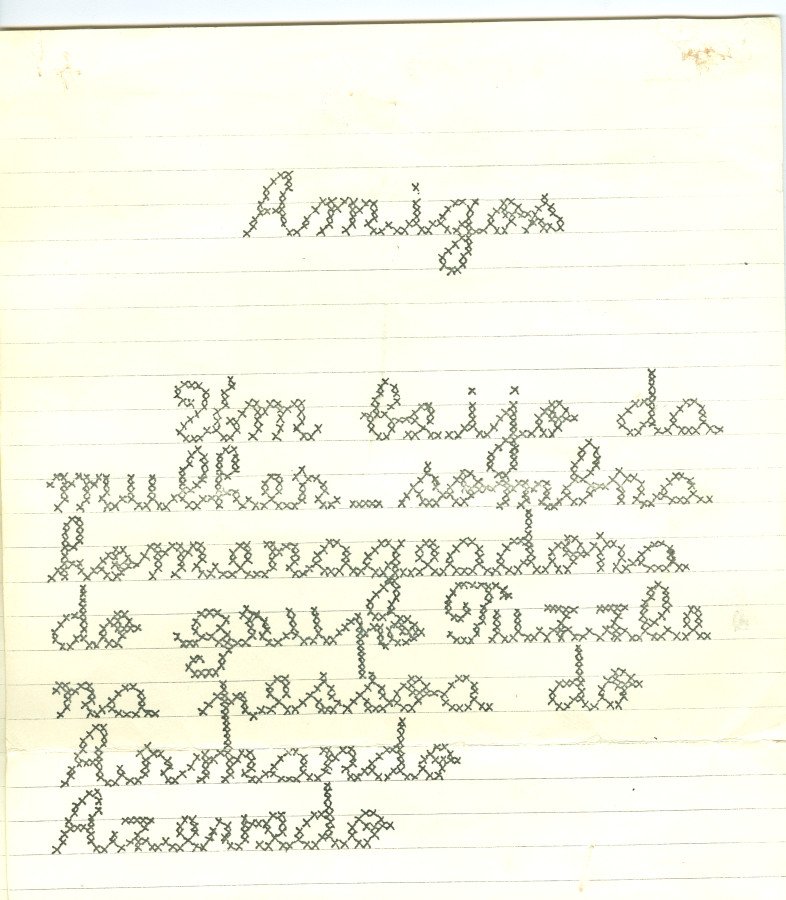 Amigos
Um beijo da
mulher_sombra
homenageadora
do grupo Puzzle
na pessoa do
Armando
Azevedo